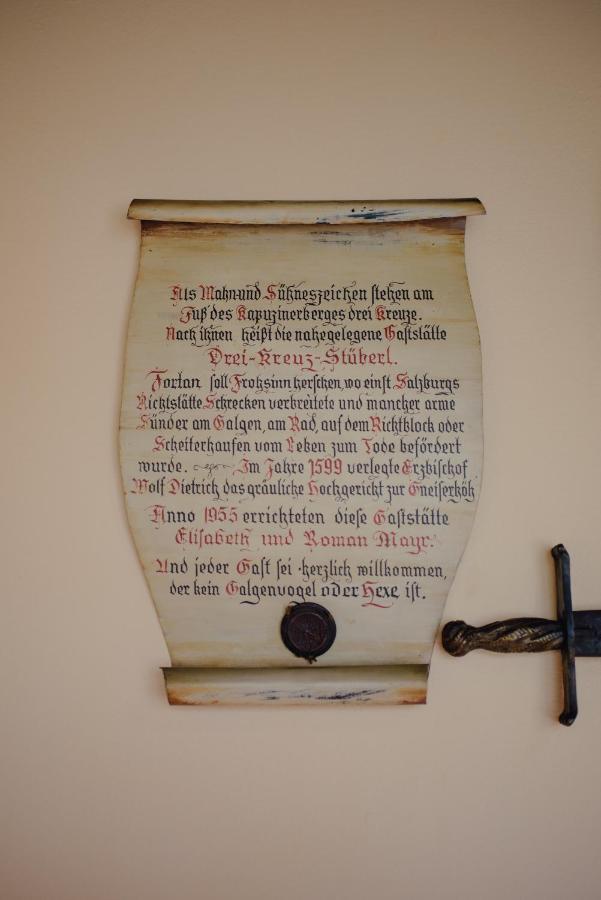 Als Mahn- und Sühneszeichen stehen am
Fuß des Kapuzinerberges drei Kreuze.
Nach ihnen heißt die nahegelegene Gaststätte
Drei-Kreuz-Stüberl.
Fortan soll Frohsinn herschen, wo einst Salzburgs
Richtstätte Schrecken verbreitete und mancher arme
Sünder am Galgen, am Rad, auf dem Richtblock oder
Scheiterhaufen vom Leben zum Tode befördert
wurde. Im Jahre 1599 verlegte Erzbischof
Wolf Dietrich das gräuliche Hochgericht zur Gneiserhöh
Anno 1955 errichteten diese Gaststätte
Elisabeth und Roman Mayr.
Und jeder Gast sei herzlich willkommen,
der kein Galgenvogel oder Hexe ist.